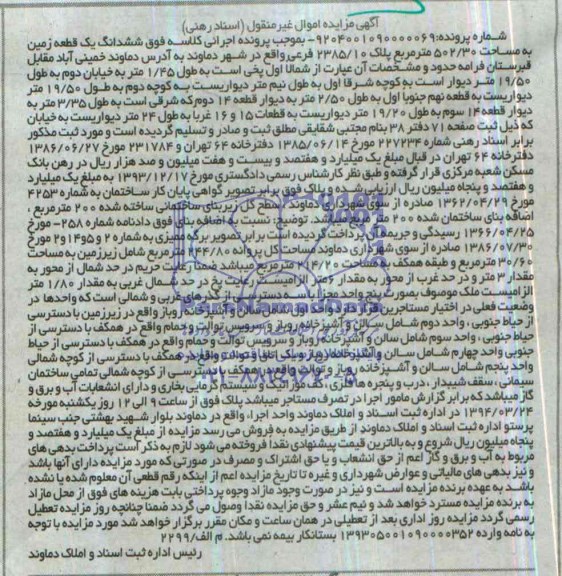 آگهی مزایده اموال غیرمنقول (اسناد رهنی)
شماره پرونده: ۹۲۰۴۰۰۱۰۹۰۰۰۰۰۶۹- بموجب پرونده اجرائی کلاسه فوق ششدانگ یک قطعه زمین
به مساحت ۵۰۲/۳۰ مترمربع پلاک ۲۳۸۵/۱۰ فرعی واقع در شهر دماوند به آدرس دماوند خمینی آباد مقابل
قبرستان فرامه حدود و مشخصات آن عبارت از شمالا اول پخی است به طول ۱/۴۵ متر به خیابان دوم به طول
۱۹/۵۰ متر دیوار است به کوچه شرقا اول به طول نیم متر دیواریست به کوچه دوم به طول ۱۹/۵۰ متر
دیواریست به قطعه نهم جنوبا اول به طول ۲/۵۰ متر به دیوار قطعه ۱۴ دوم که شرقی است به طول ۳/۳۵ متر به
دیوار قطعه ۱۴ سوم به طول ۱۹/۲۰ متر دیواریست به قطعات ۱۵ و ۱۶ غربا به طول ۲۴ متر دیواریست به خیابان
که ذیل ثبت صفحه ۷۱ دفتر ۳۸ بنام مجتبی شقایقی مطلق ثبت و صادر و تسلیم گردیده است و مورد ثبت مذکور
برابر اسناد رهنی شماره ۲۲۷۲۳۴ مورخ ۱۳۸۵/۰۶/۱۴ دفترخانه ۶۴ تهران و ۲۳۱۷۸۴ مورخ ۱۳۸۶/۰۶/۲۷
دفترخانه ۶۴ تهران در قبال مبلغ یک میلیارد و هفتصد و بیست و هفت میلیون و صد هزار ریال در رهن بانک
مسکن شعبه مرکزی قرار گرفته و طبق نظر کارشناس رسمی دادگستری مورخ ۱۳۹۳/۱۲/۱۷ به مبلغ یک میلیارد
و هفتصد و پنجاه میلیون ریال ارزیابی شده و پلاک فوق برابر تصویر گواهی پایان کار ساختمان به شماره ۴۲۵۳
مورخ ۱۳۶۲/۰۴/۲۹ صادره از سوی شهرداری دماوند سطح کل زیربنای ساختمانی ساخته شده ۲۰۰ مترمربع ،
اضافه بنای ساختمان شده ۲۰۰ متر مربع میباشد. توضیح: نسبت به اضافه بنای فوق دادنامه شماره ۲۵۸- مورخ
۱۳۶۶/۰۴/۲۵ رسیدگی و جریمه آن پرداخت گردیده است برابر تصویر برگه ممیزی به شماره ۲ و ۱۴۹۵ و ۲ مورخ
۱۳۸۶/۰۷/۳۰ صادره از سوی شهرداری دماوند مساحت کل پروانه ۲۴۴/۸۰ مترمربع شامل زیرزمین به مساحت
۳۰/۶۰ مترمربع و طبقه همکف به مساحت ۲۱۴/۲۰ مترمربع میباشد ضمنا رعایت حریم در حد شمال از محور به
مقدار ۳ متر و در حد غرب از محور به مقدار ۶ متر الزامیست رعایت پخ در حد شمال غربی به مقدار ۱/۸۰ متر
الزامیست ملک موصوف بصورت پنج واحد مجزا با سه دسترسی از گذرهای غربی و شمالی است که واحدها در
وضعیت فعلی در اختیار مستاجرین قرار دارد واحد اول شامل سالن و آشپزخانه روباز واقع در زیرزمین با دسترسی
از حیاط جنوبی ، واحد دوم شامل سالن و آشپزخانه روباز و سرویس توالت و حمام واقع در همکف با دسترسی از
حیاط جنوبی ، واحد سوم شامل سالن و آشپزخانه روباز و سرویس توالت و حمام واقع در همکف با دسترسی از حیاط
جنوبی واحد چهارم شامل سالن و آشپزخانه روباز و یک اتاق و توالت واقع در همکف با دسترسی از کوچه شمالی
واحد پنجم شامل سالن و آشپزخانه روباز و توالت واقع در همکف با دسترسی از کوچه شمالی تمامی ساختمان
سیمانی ، سقف شیبدار ، درب و پنجره ها فلزی، کف موزائیک و سیستم گرمایی بخاری و دارای انشعابات آب و برق و
گاز میباشد که برابر گزارش مامور اجرا در تصرف مستاجر میباشد پلاک فوق از ساعت ۹ الی ۱۲ روز یکشنبه مورخه
۱۳۹۴/۰۳/۲۴ در اداره ثبت اسناد و املاک دماوند واحد اجرا، واقع در دماوند بلوار شهید بهشتی جنب سینما
پرستو اداره ثبت اسناد و املاک دماوند از طریق مزایده به فروش می رسد مزایده از مبلغ یک میلیارد و هفتصد و
پنجاه میلیون ریال شروع و به بالاترین قیمت پیشنهادی نقدا فروخته می شود لازم به ذکر است پرداخت بدهی های
مربوط به آب و برق و گاز اعم از حق انشعاب و یا حق اشتراک و مصرف در صورتی که مورد مزایده دارای آنها باشد
و نیز بدهی های مالیاتی و عوارض شهرداری و غیره تا تاریخ مزایده اعم از اینکه رقم قطعی آن معلوم شده یا نشده
باشد به عهده برنده مزایده است و نیز در صورت وجود مازاد وجوه پرداختی بابت هزینه های فوق از محل مازاد
به برنده مزایده مسترد خواهد شد و نیم عشر و حق مزایده نقدا وصول می گردد ضمنا چنانچه روز مزایده تعطیل
رسمی گردد مزایده روز اداری بعد از تعطیلی در همان ساعت و مکان مقرر برگزار خواهد شد مورد مزایده با توجه
به نامه وارده ۱۳۹۳۰۵۰۰۱۰۹۰۰۰۰۳۵۲ بستانکار بیمه نمی باشد. م الف/۲۲۹۹
رئیس اداره ثبت اسناد و املاک دماوند